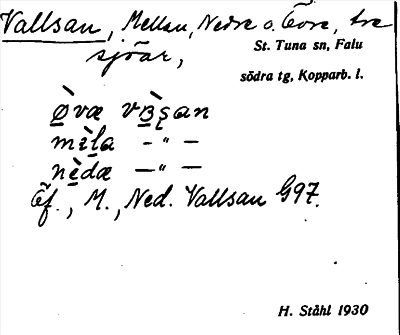 Vallsan, Mellan, Nedre o. Övre, tre
St. Tuna sn, Falu
sjöar,
södra tg, Kopparb. l.
ø̀væ
mìla – " –
nèdæ – " –
Öf., M., Ned. Vallsan G97.
H. Ståhl 1930